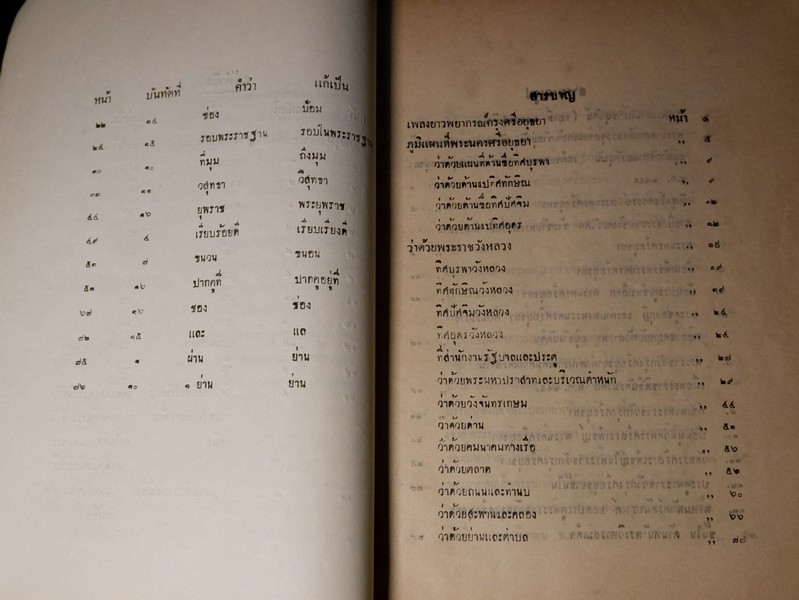 หน้า บันทัดที่ คำว่า แก้เป็น
๒๒ ๑๔ ช่อง ป้อม
๒๔ ๑๕ รอบพระราชฐาน รอบในพระราชฐาน
๓๐ ๑๐ ที่มุม ถึงมุม
๓๓ ๑๑ วสุทรา วสุธรา
๔๔ ๑๖ ยุพราช พระยุพราช
๔๙ ๔ เรียบร้อยดี เรียบเรียงดี
๕๑ ๗ ขนวน ขนอน
๕๑ ๑๖ ปากคูที่ ปากคูอยู่ที่
๖๗ ๑๖ ซอง ช่อง
๗๒ ๑๕ และ แล
๗๕ ๑ ผ่าน ย่าน
๗๖ ๑๐ ๑ ย่าน ย่าน
สารบาญ
เพลงยาวพยากรณ์กรุงศรีอยุธยา หน้า ๑
ภูมิแผนที่พระนครศรีอยุธยา ,, ๕
ว่าด้วยแผนที่ด้านชื่อทิศบุรพา ,, ๙
ว่าด้วยด้านแปทิศทักษิณ ,, ๙
ว่าด้วยด้านชื่อทิศปัศจิม ,, ๑๒
ว่าด้วยด้านแปทิศอุดร ,, ๑๒
ว่าด้วยพระราชวังหลวง ,, ๑๘
ทิศบุรพาวังหลวง ,, ๑๙
ทิศทักษิณวังหลวง ,, ๑๙
ทิศปัศจิมวังหลวง ,, ๒๔
ทิศอุดรวังหลวง ,, ๒๕
ที่สำนักงานรัฐบาลและประตู ,, ๒๗
ว่าด้วยพระมหาปราสาทและบริเวณตำหนัก ,, ๒๙
ว่าด้วยวังจันทรเกษม ,, ๔๔
ว่าด้วยด่าน ,, ๕๑
ว่าด้วยคมนาคมทางเรือ ,, ๕๖
ว่าด้วยตลาด ,, ๕๒
ว่าด้วยถนนและทำนบ ,, ๖๐
ว่าด้วยสะพานและคลอง ,, ๖๖
ว่าด้วยย่านและตำบล ,, ๗๗